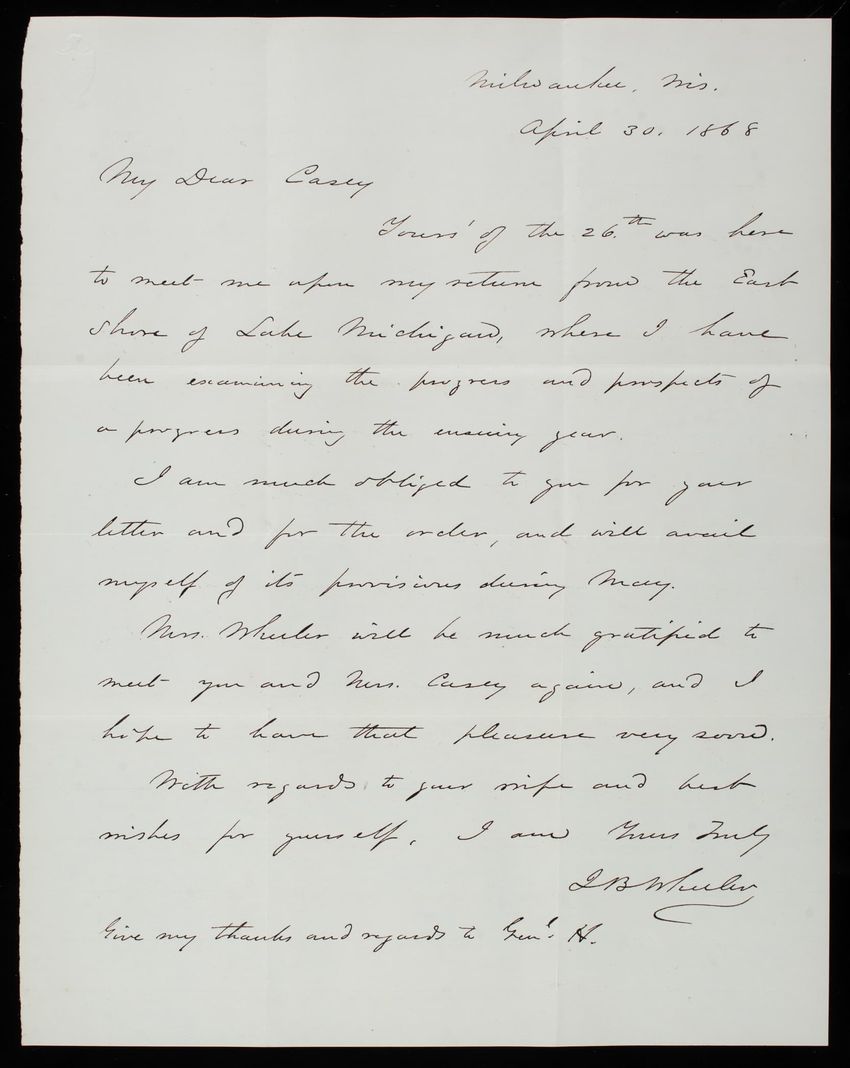 Milwaukee, Wis.
April 30. 1868
My Dear Casey
Yours' of the 26.th was here
to meet me upon my return from the East
Shore of Lake Michigan, where I have
been examining the progress and prospects of
a progress during the ensuing year.
I am much obliged to you for your
letter and for the order, and will avail
myself of its provisions during May.
Mrs. Wheeler will be much gratified to
meet you and Mrs. Casey again, and I
hope to have that pleasure very soon.
With regards to your wife and best
wishes for yourself, I am Yours Truly
J B Wheeler
Give my thanks and regards to Genl. H.